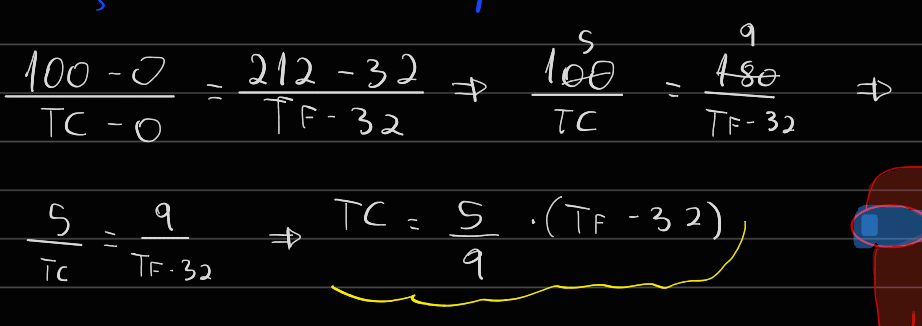 100 - 0 / TC - 0 = 212 - 32 / TF - 32 ⇒ 100 5 / TC = 180 9 / TF - 32 ⇒
5 / TC = 9 / TF - 32 ⇒ TC = 5 / 9 · (TF - 32)